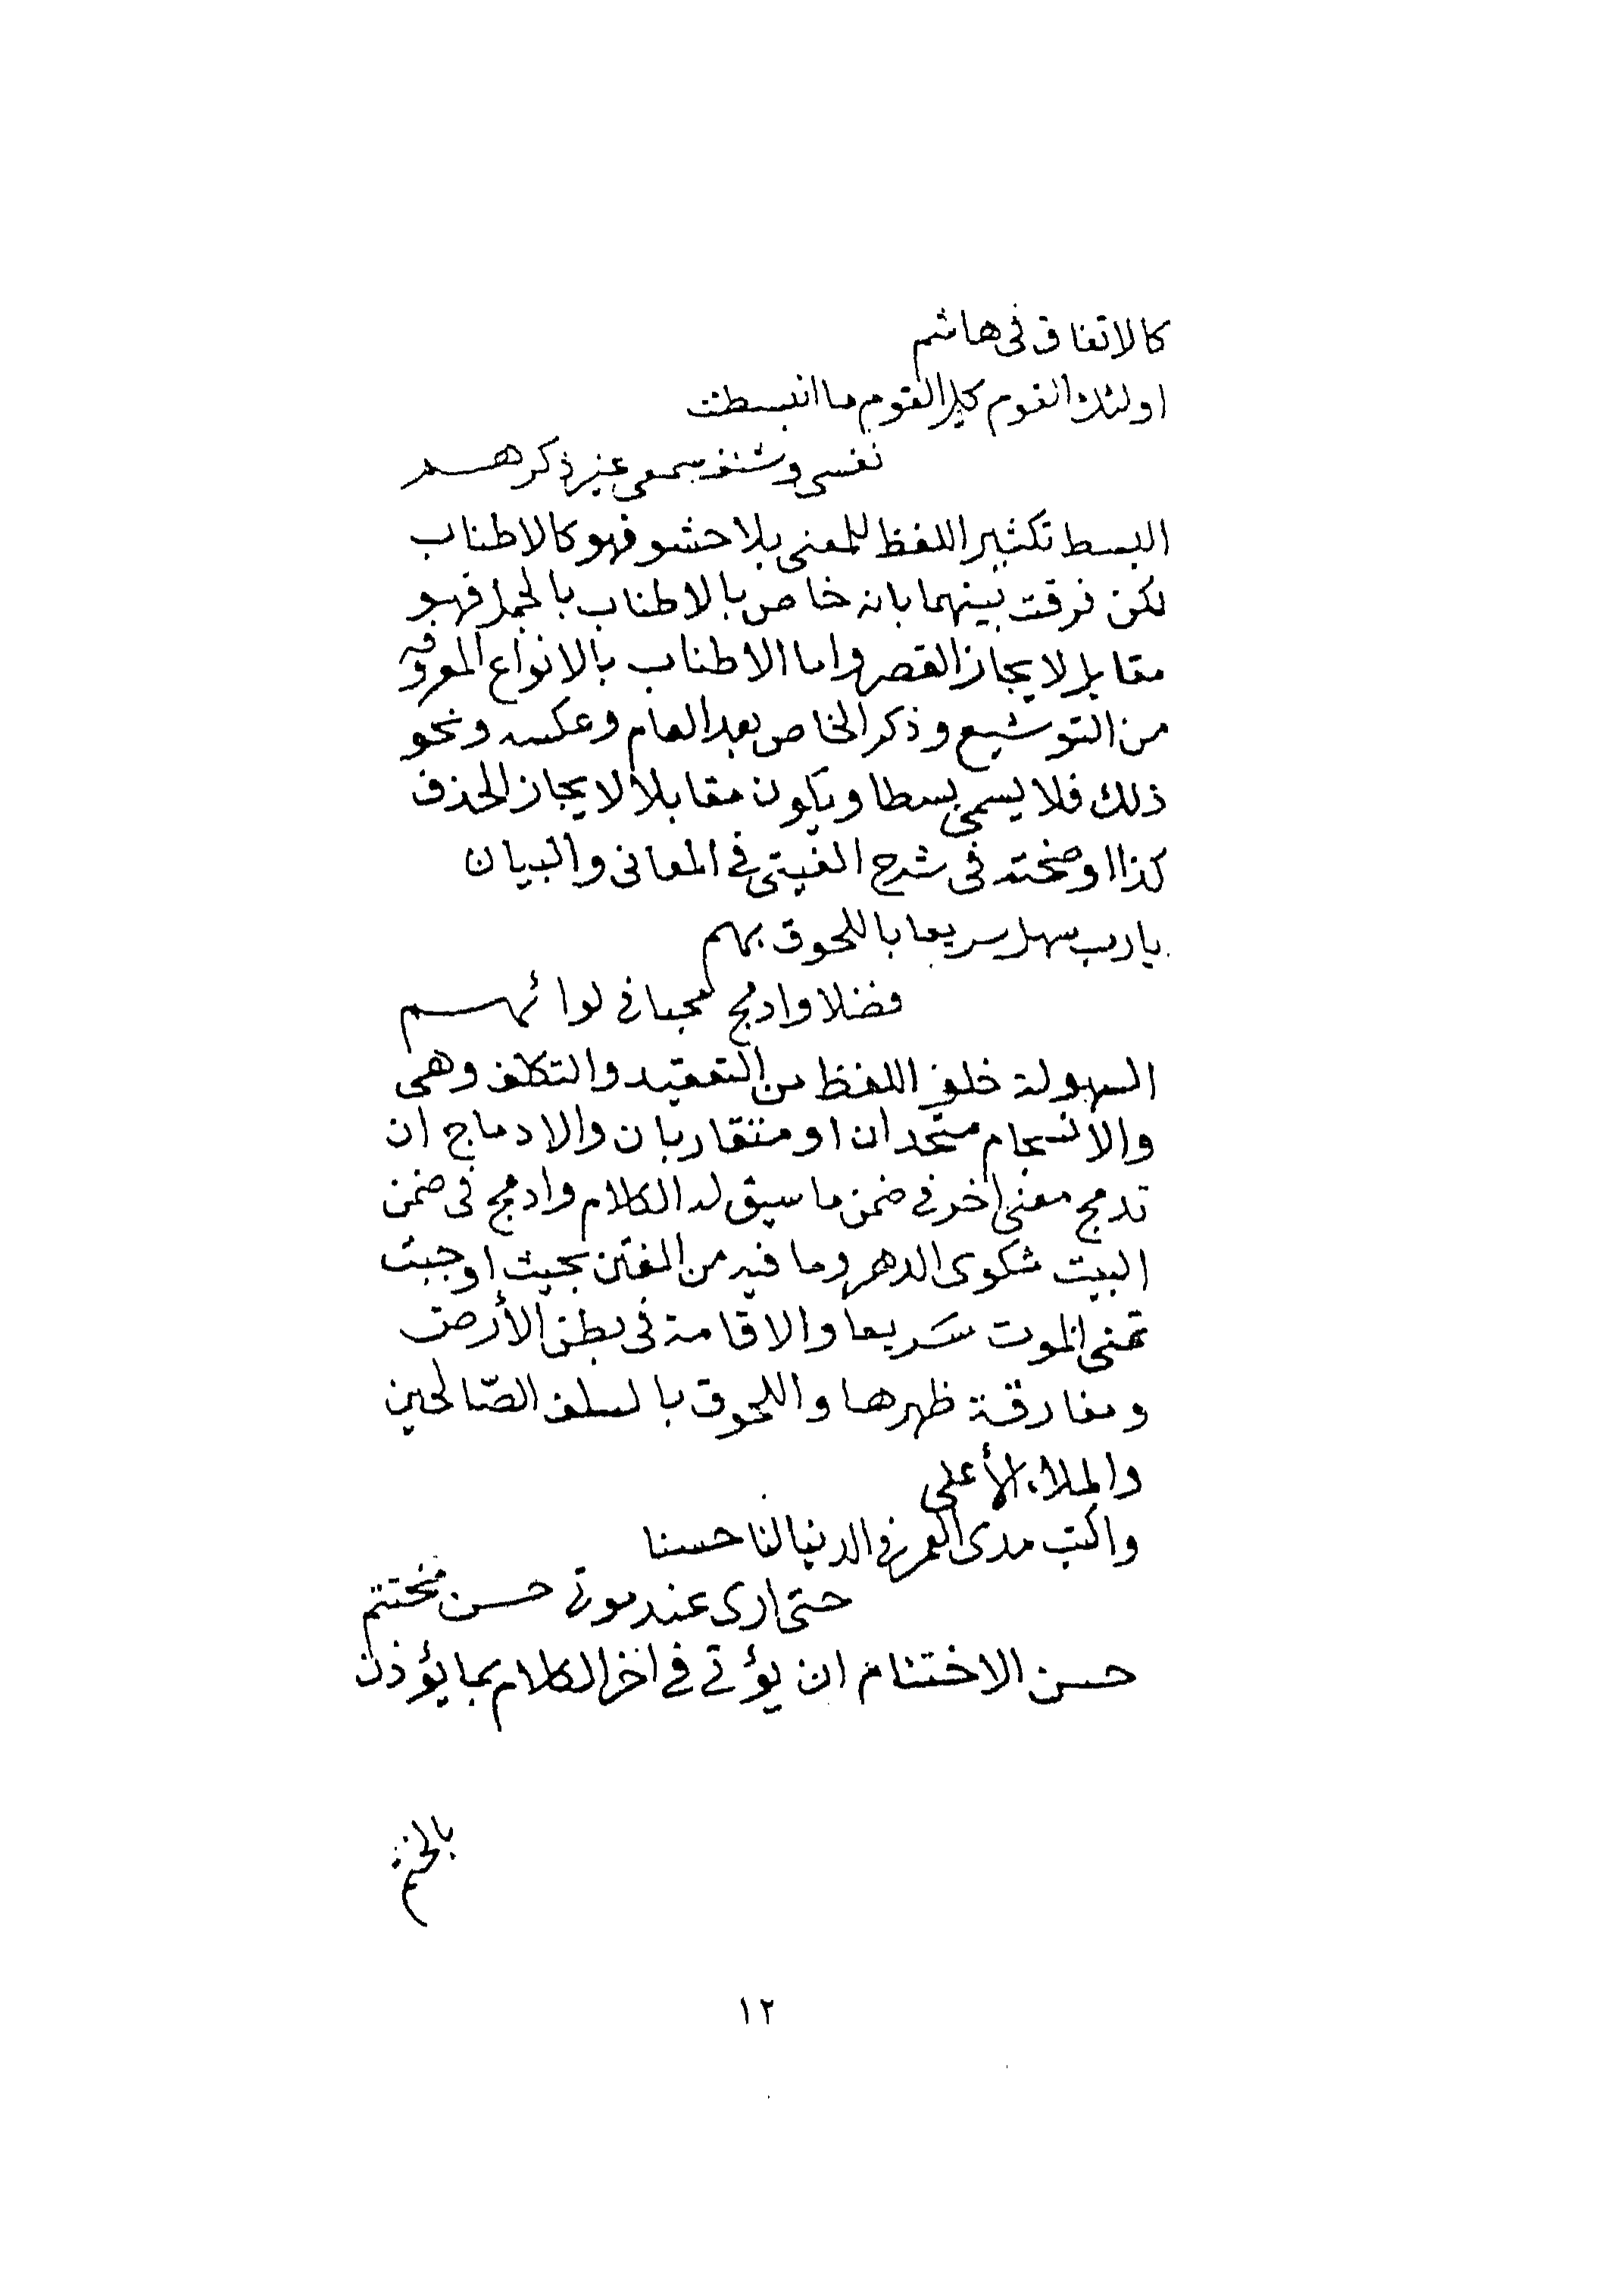 كالاتفاق فى هاشم
اولئك القوم كل القوم ما انبسطت
نفسى وشنف سمعى غير ذكرهم
البسط تكثير اللفظ للمعنى بلا حشو فهو كالاطناب
لكن فرقت بينهما بانه خاص بالاطناب بالجمل فهو
مقابل لايجاز القصر واما الاطناب بالانواع المعروفه
من التوشيع وذكر الخاص بعد العام وعكسه ونحو
ذلك فلا يسمى بسطا ويكون مقابلا لايجاز الحذف
كذا اوضحته فى شرح الفيتى فى المعانى والبيان
يارب سهل سريعا باللحوق بهم
فضلا وادمج محبا فى لوائهم
السهولة خلو اللفظ من التعقيد والتكلف وهى
والانسجام متحدان او متقاربان والادماج ان
تدمج معنى اخر فى ضمن ما سيق له الكلام وادمج فى ضمن
البيت شكوى الدهر وما فيه من الفتن بحيث اوجبت
تمنى الموت سَريعا والاقامة فى بطن الأرض
ومفارقة ظهرها واللحوق بالسلف الصّالحين
والملاء الأعلى
واكتب مدى العمر فى الدنيا لنا حسنا
حتى ارى عند موتى حسن مختتم
حسن الاختتام ان يؤتى فى اخر الكلام بما يؤذن
بالختم
١٢